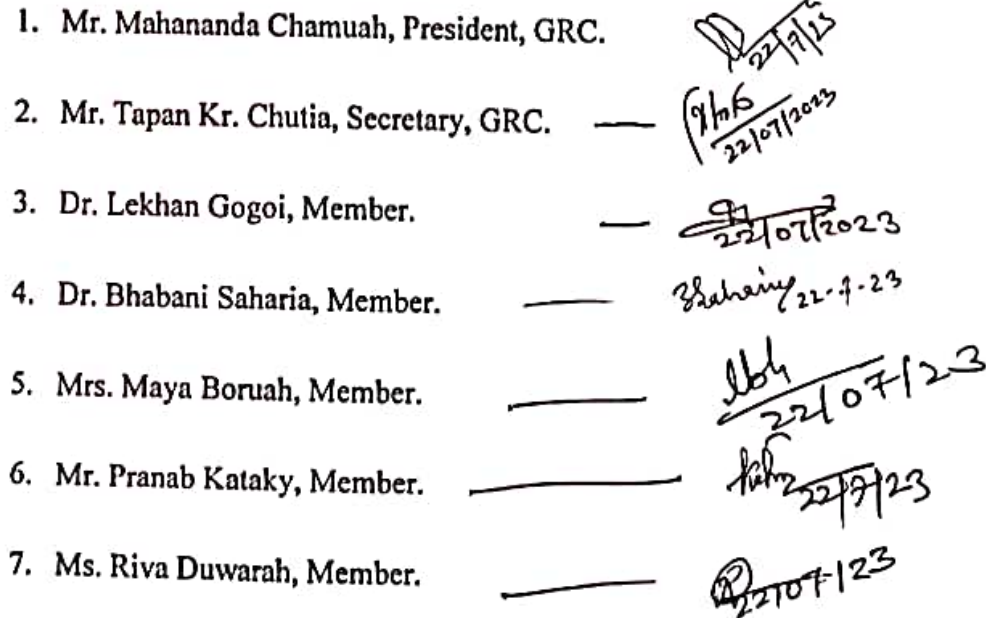 1. Mr. Mahananda Chamuah, President, GRC. 22/7/23
2. Mr. Tapan Kr. Chutia, Secretary, GRC. — 22/07/2023
3. Dr. Lekhan Gogoi, Member. — 22/07/2023
4. Dr. Bhabani Saharia, Member. — 22-7-23
5. Mrs. Maya Boruah, Member. — 22/07/23
6. Mr. Pranab Kataky, Member. — 22/7/23
7. Ms. Riva Duwarah, Member. — 22/07/23